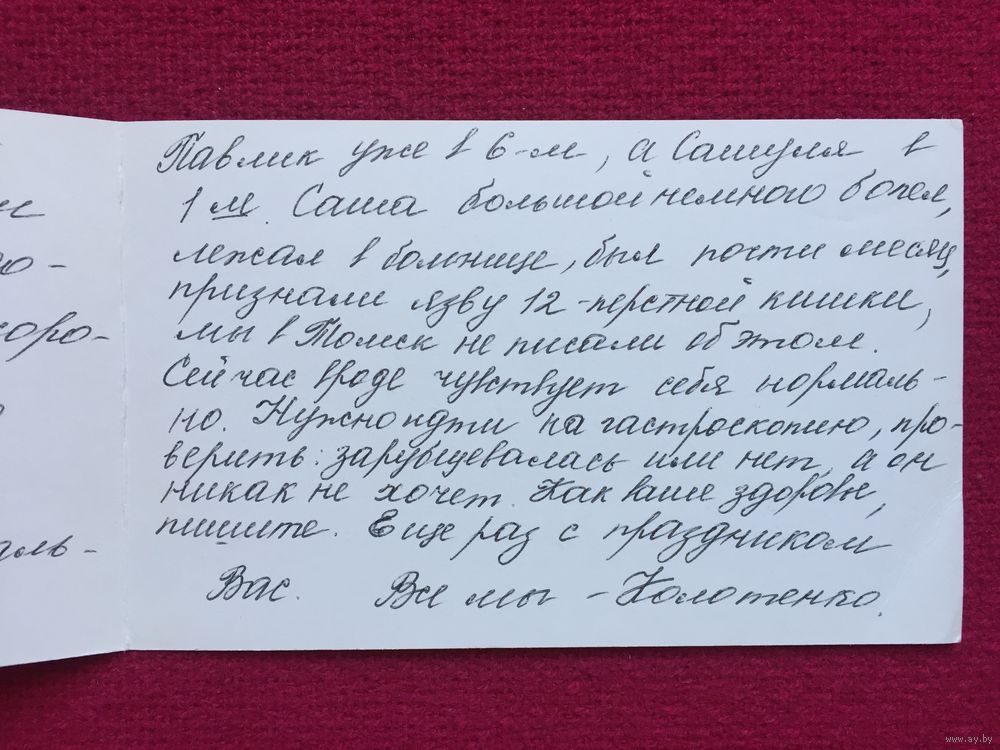 Павлик уже в 6-м, а Сашуля в
1 м. Саша большой немного болел,
лежал в больнице, был почти месяц,
признали язву 12-перстной кишки,
мы в Томск не писали об этом.
Сейчас вроде чувствует себя нормаль-
но. Нужно идти на гастроскопию, про-
верить: зарубцевалась или нет, а он
никак не хочет. Как ваше здоровье,
пишите. Еще раз с праздником
Вас. Все мы - Колотенко.
ю-
коро-
аль-
www.ay.by